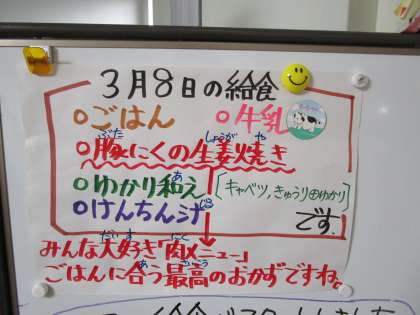 3月8日の給食
○ごはん ○牛乳
○豚にくの生姜焼き
ぶた しょうが や
○ゆかり和え [キャベツ,きゅうり⊕ゆかり]
あ
○けんちん汁 です。
じる
みんな大好き「肉メニュー」
だいす にく
ごはんに合う最高のおかずですね。
あ さいこう